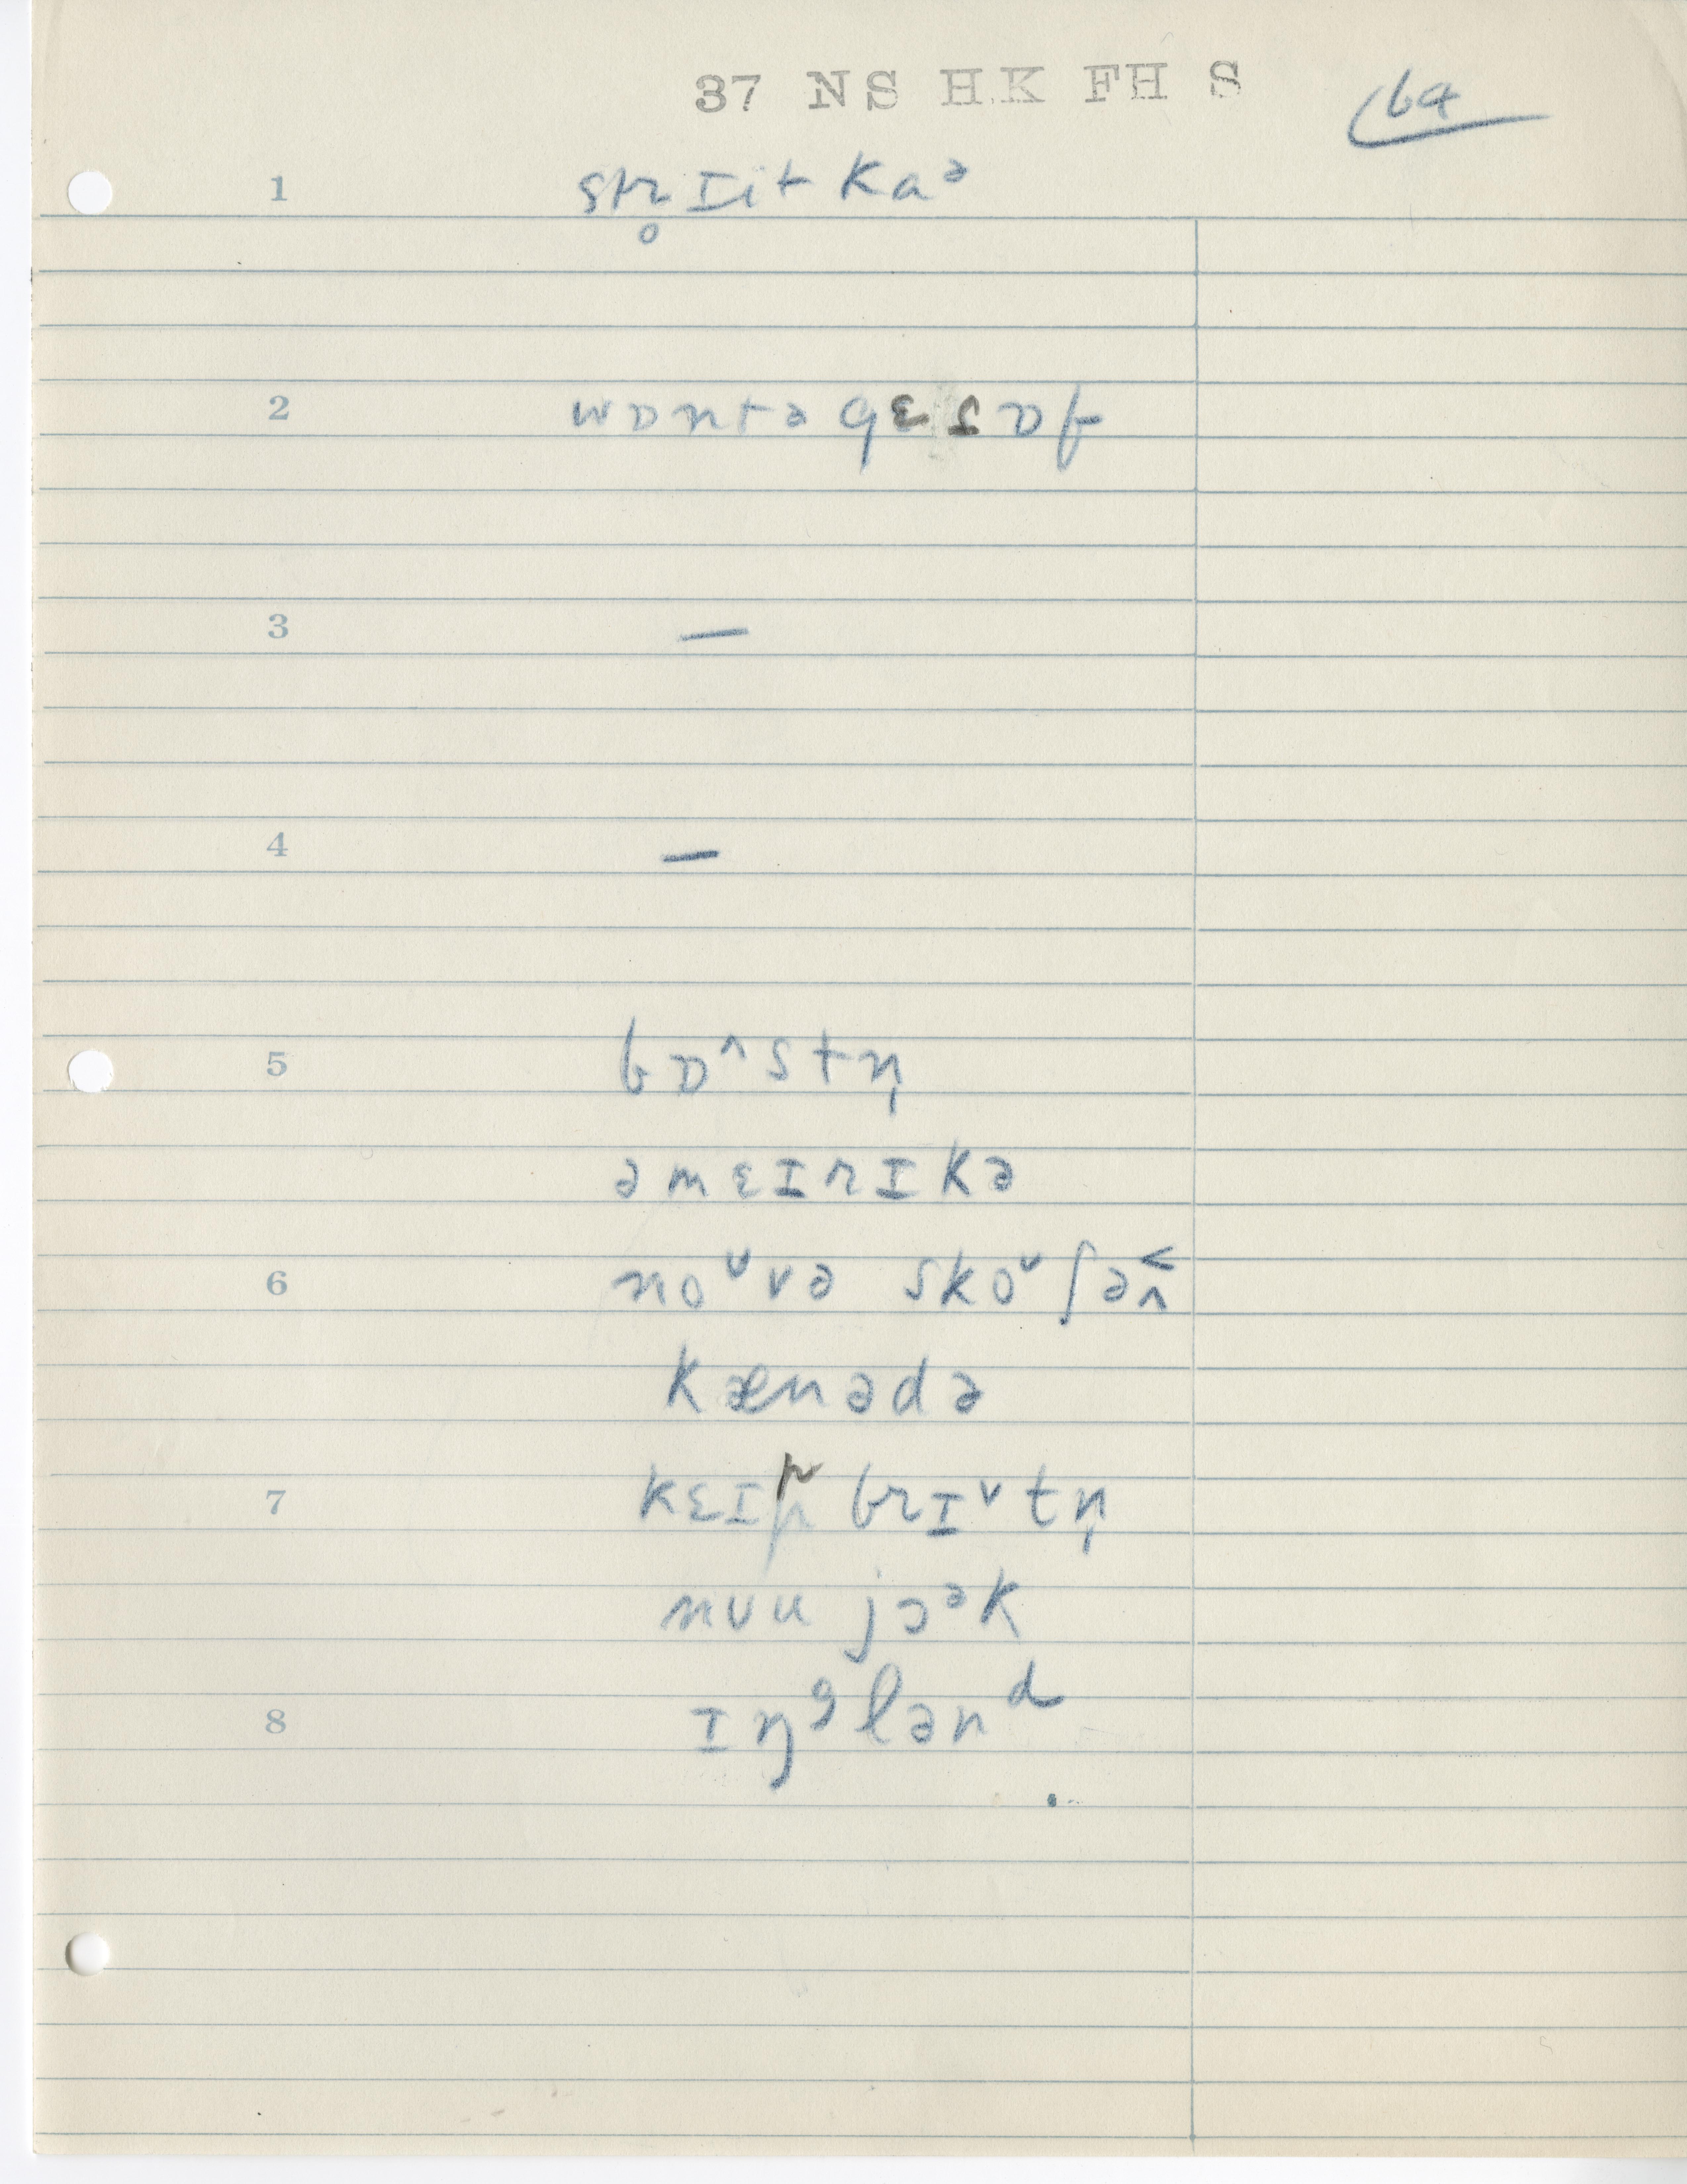 37 NS HK FH S
64
1 str̥ɪit kaᵊ
2 wɒntə gɛt ɒf
3 —
4 —
5 bɒ^stn̩
əmɛɪrɪkə
6 noˇvə skoˇʃə
kænədə
7 kɛɪp brɪˇtn̩
nʊu jɔᵊk
8 ɪŋᵍlənᵈ